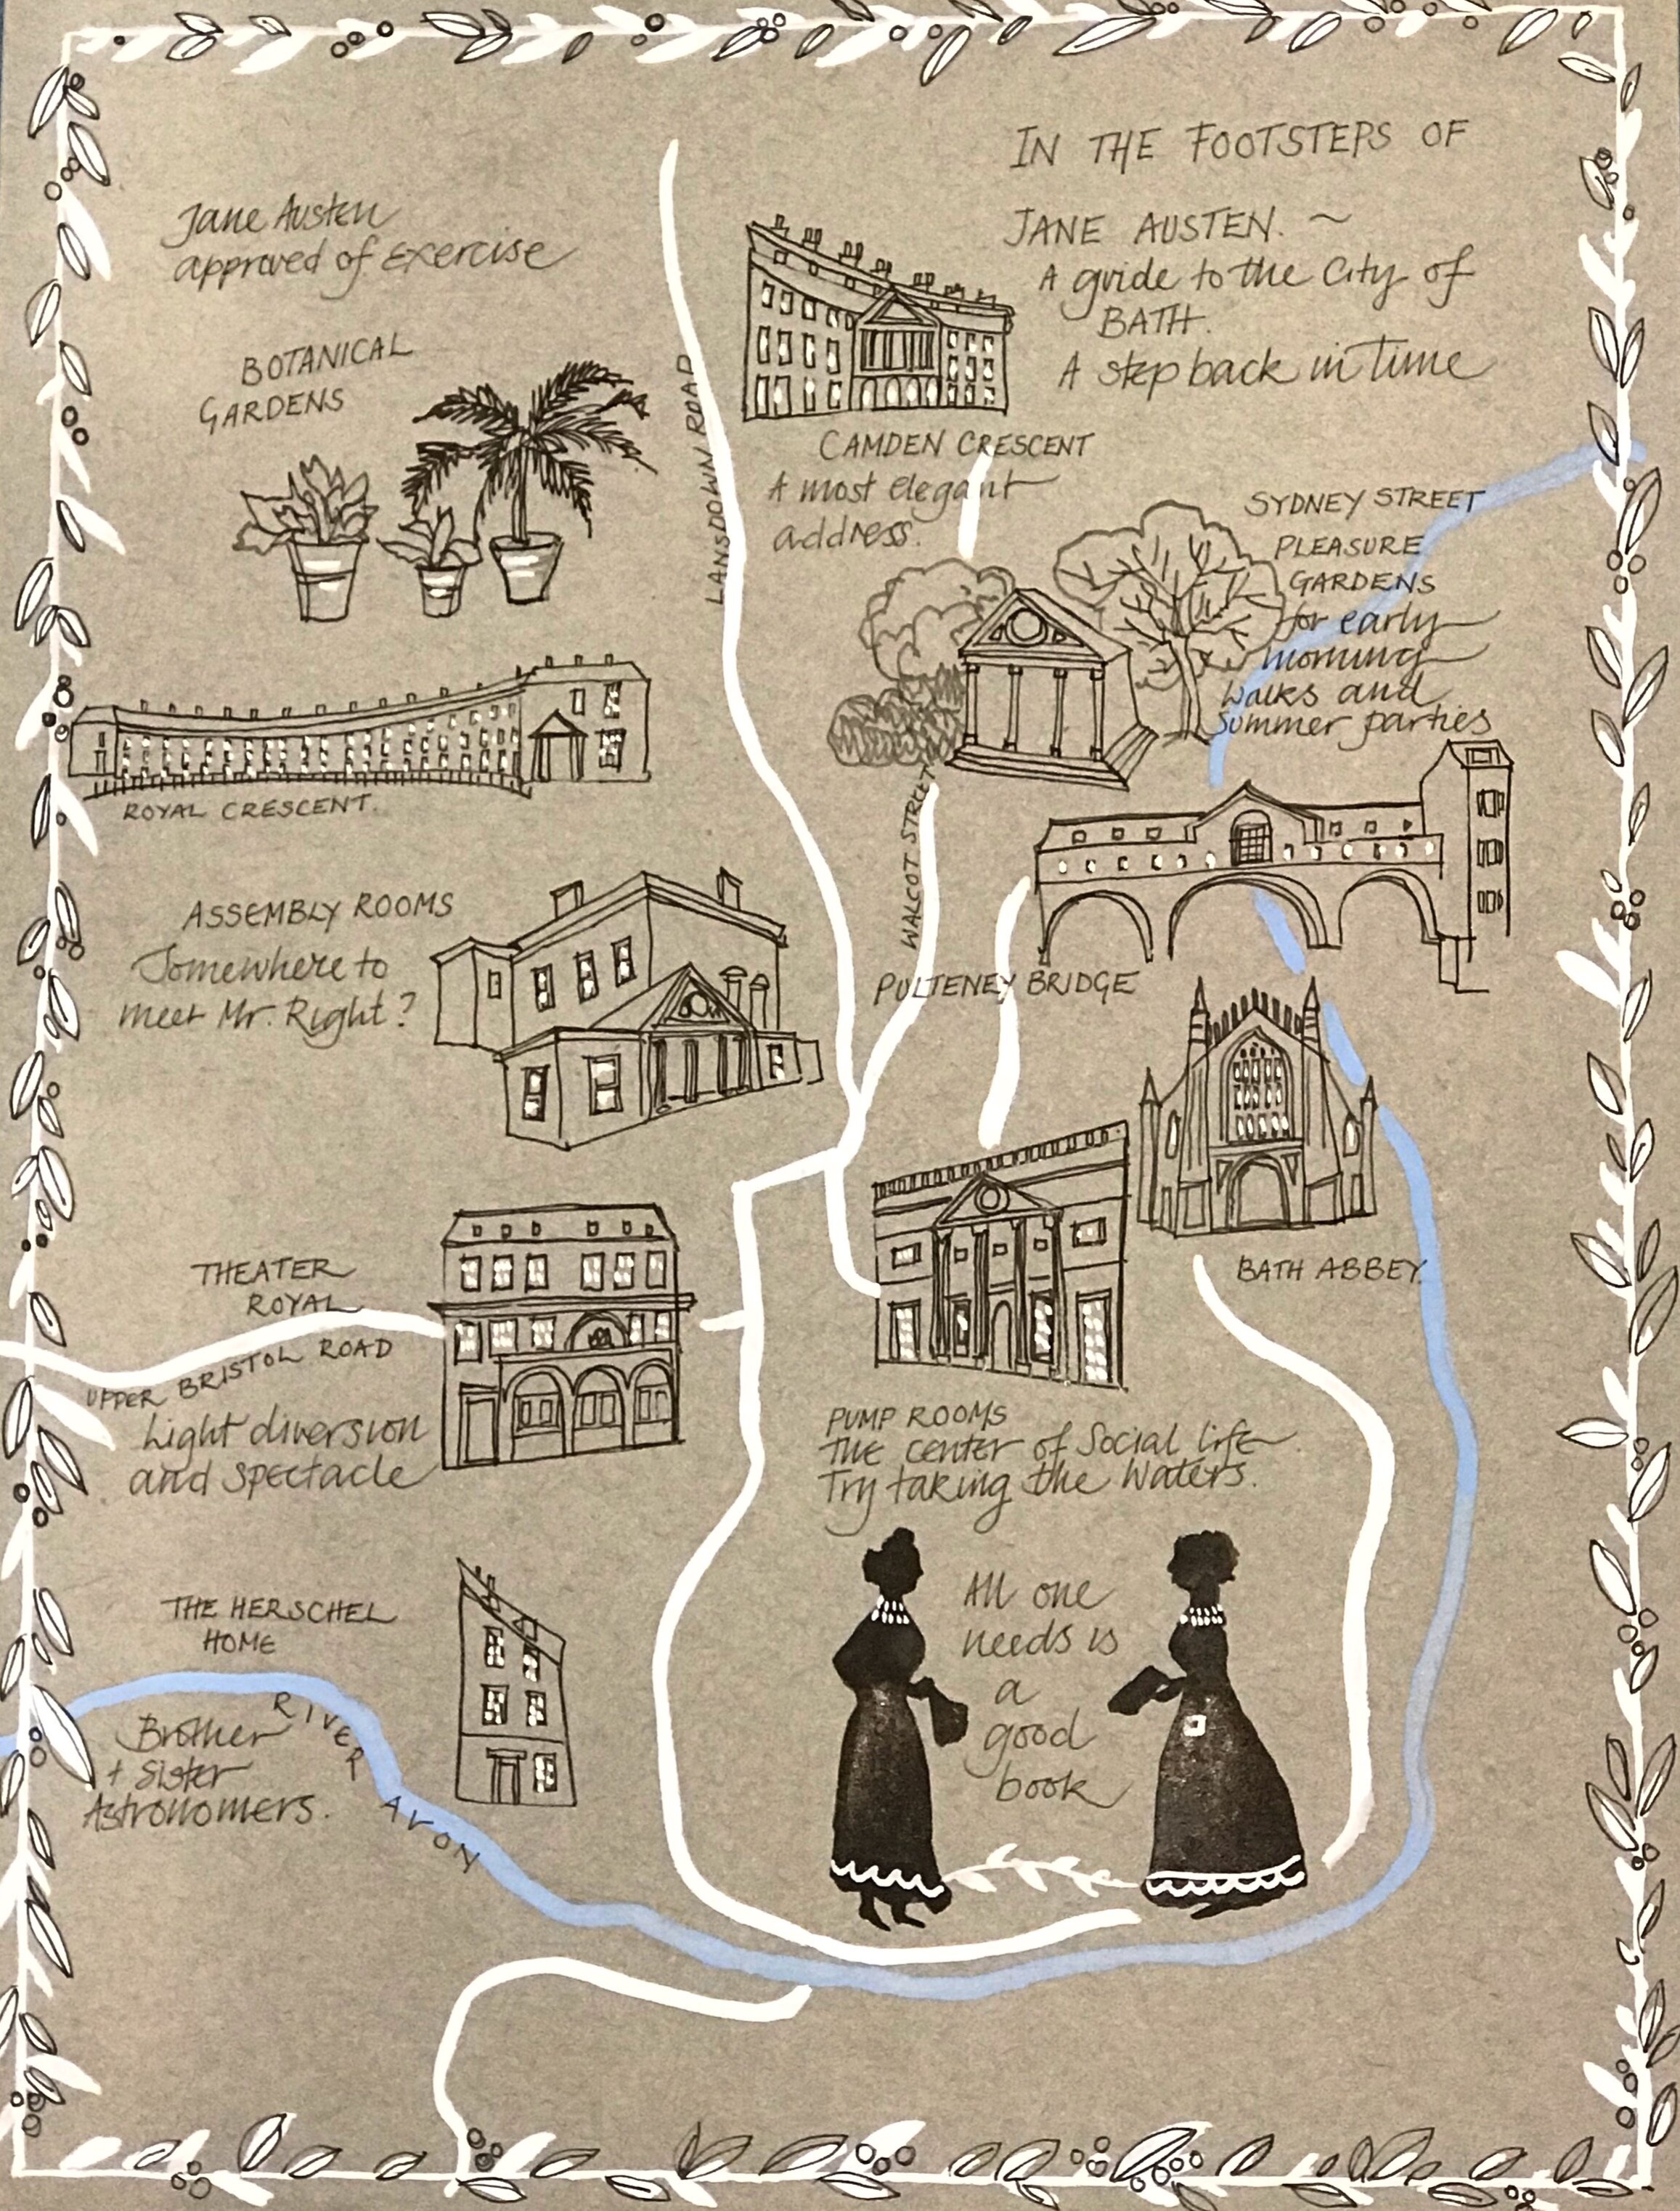 IN THE FOOTSTEPS OF
JANE AUSTEN. ~
A guide to the City of
BATH.
A step back in Time
Jane Austen
approved of exercise
BOTANICAL
GARDENS
LANSDOWN ROAD
CAMDEN CRESCENT
A most elegant
address.
SYDNEY STREET
PLEASURE
GARDENS
for early
morning
walks and
summer parties
ROYAL CRESCENT.
WALCOT STREET
ASSEMBLY ROOMS
Somewhere to
meet Mr. Right?
PULTENEY BRIDGE
BATH ABBEY
THEATER
ROYAL
UPPER BRISTOL ROAD
Light diversion
and spectacle
PUMP ROOMS
THE center of Social life
Try taking the Waters.
THE HERSCHEL
HOME
RIVER AVON
Brother
+ Sister
Astronomers.
All one
needs is
a
good
book